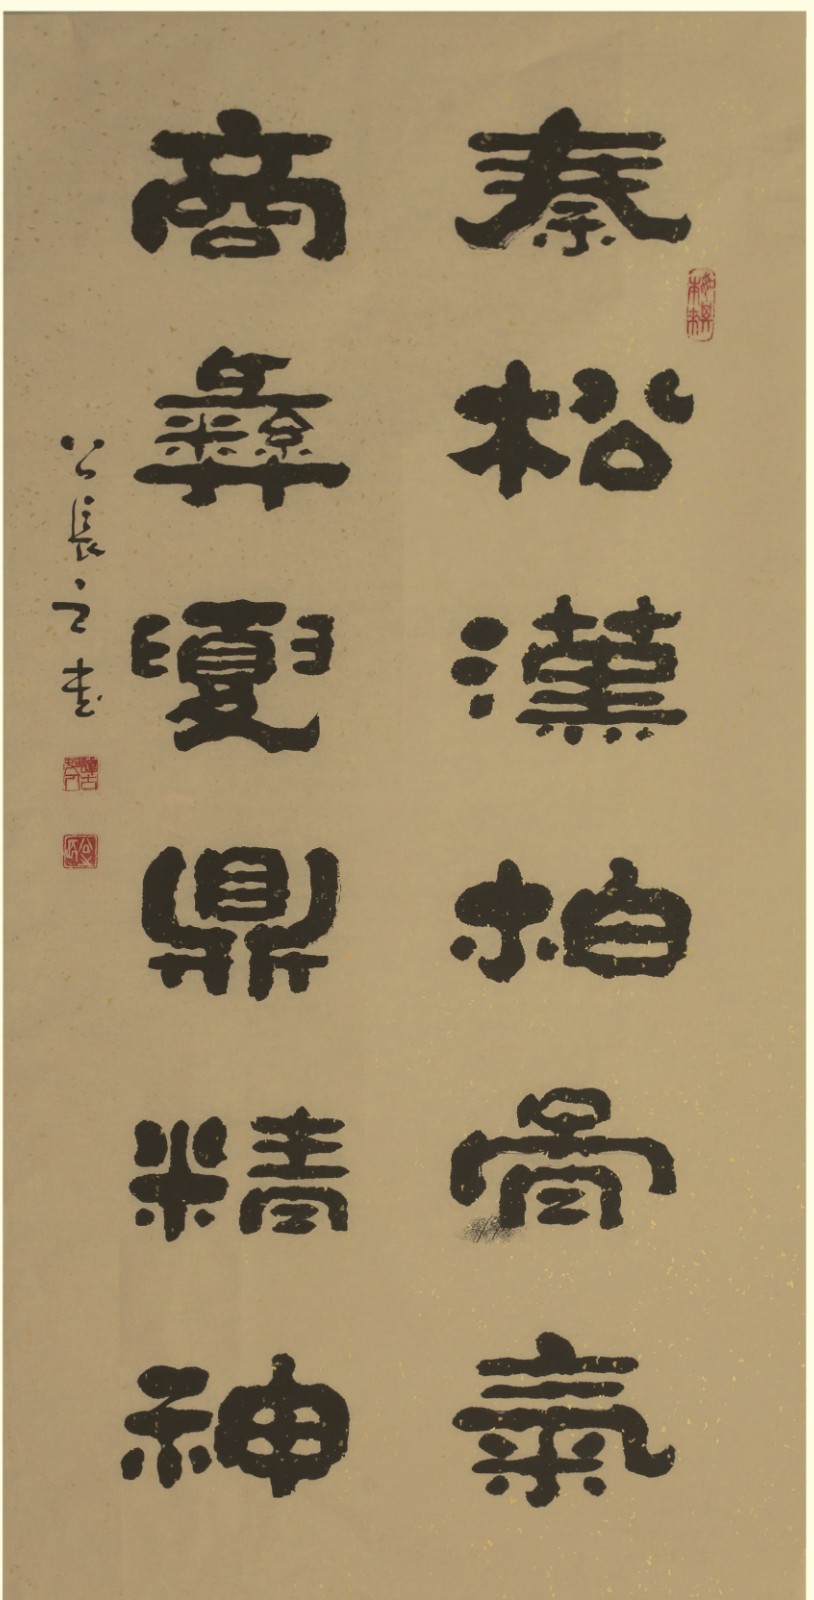 秦松漢柏骨氣
商彝夏鼎精神
公長之書